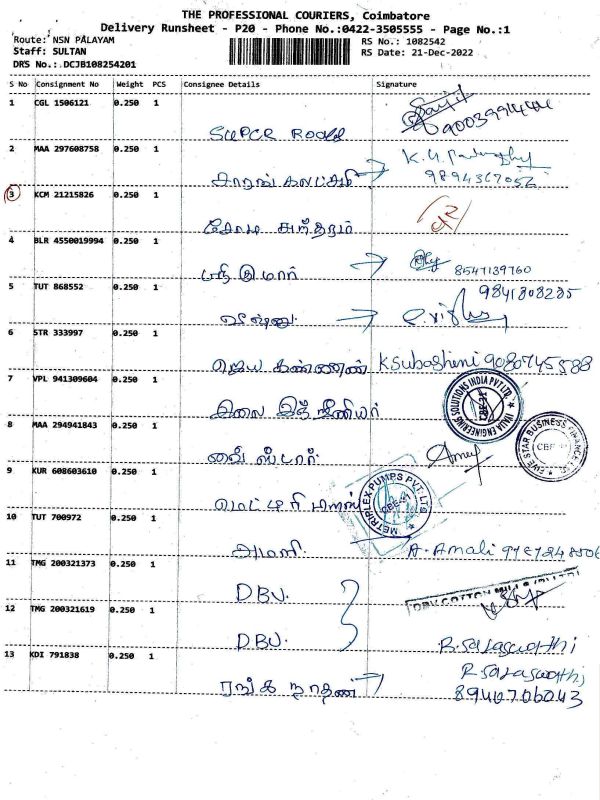 THE PROFESSIONAL COURIERS, Coimbatore
Delivery Runsheet - P20 - Phone No.:0422-3505555 - Page No.:1
Route: NSN PALAYAM
RS No.: 1082542
Staff: SULTAN
RS Date: 21-Dec-2022
DRS No.: DCJB108254201
S No Consignment No Weight PCS Consignee Details Signature
1 CGL 1506121 0.250 1
SUPER ROOFS
2 MAA 297608758 0.250 1
K.U.
9894367056
3 KCM 21215826 0.250 1
சுந்தரம்
4 BLR 4550019994 0.250 1
8547139760
5 TUT 868552 0.250 1
9841808285
விஷ்ணு
6 STR 333997 0.250 1
ஜெய கண்ணன் K Subashini 9080745588
7 VPL 941309604 0.250 1
ITALIA ENGINEERING SOLUTIONS INDIA PVT. LTD.
8 MAA 294941843 0.250 1
FIVE STAR BUSINESS FINANCE LTD
CBE
ஸ்டார்
9 KUR 608603610 0.250 1
METRIPLEX PUMPS PVT. LTD.
CBE-41
10 TUT 700972 0.250 1
அமலி A. Amali
11 TMG 200321373 0.250 1
DBV.
COTTON MILLS
12 TMG 200321619 0.250 1
DBV.
R. Saraswathi
13 KDI 791838 0.250 1
R Saraswathi
ரங்க நாதன் 8940706043